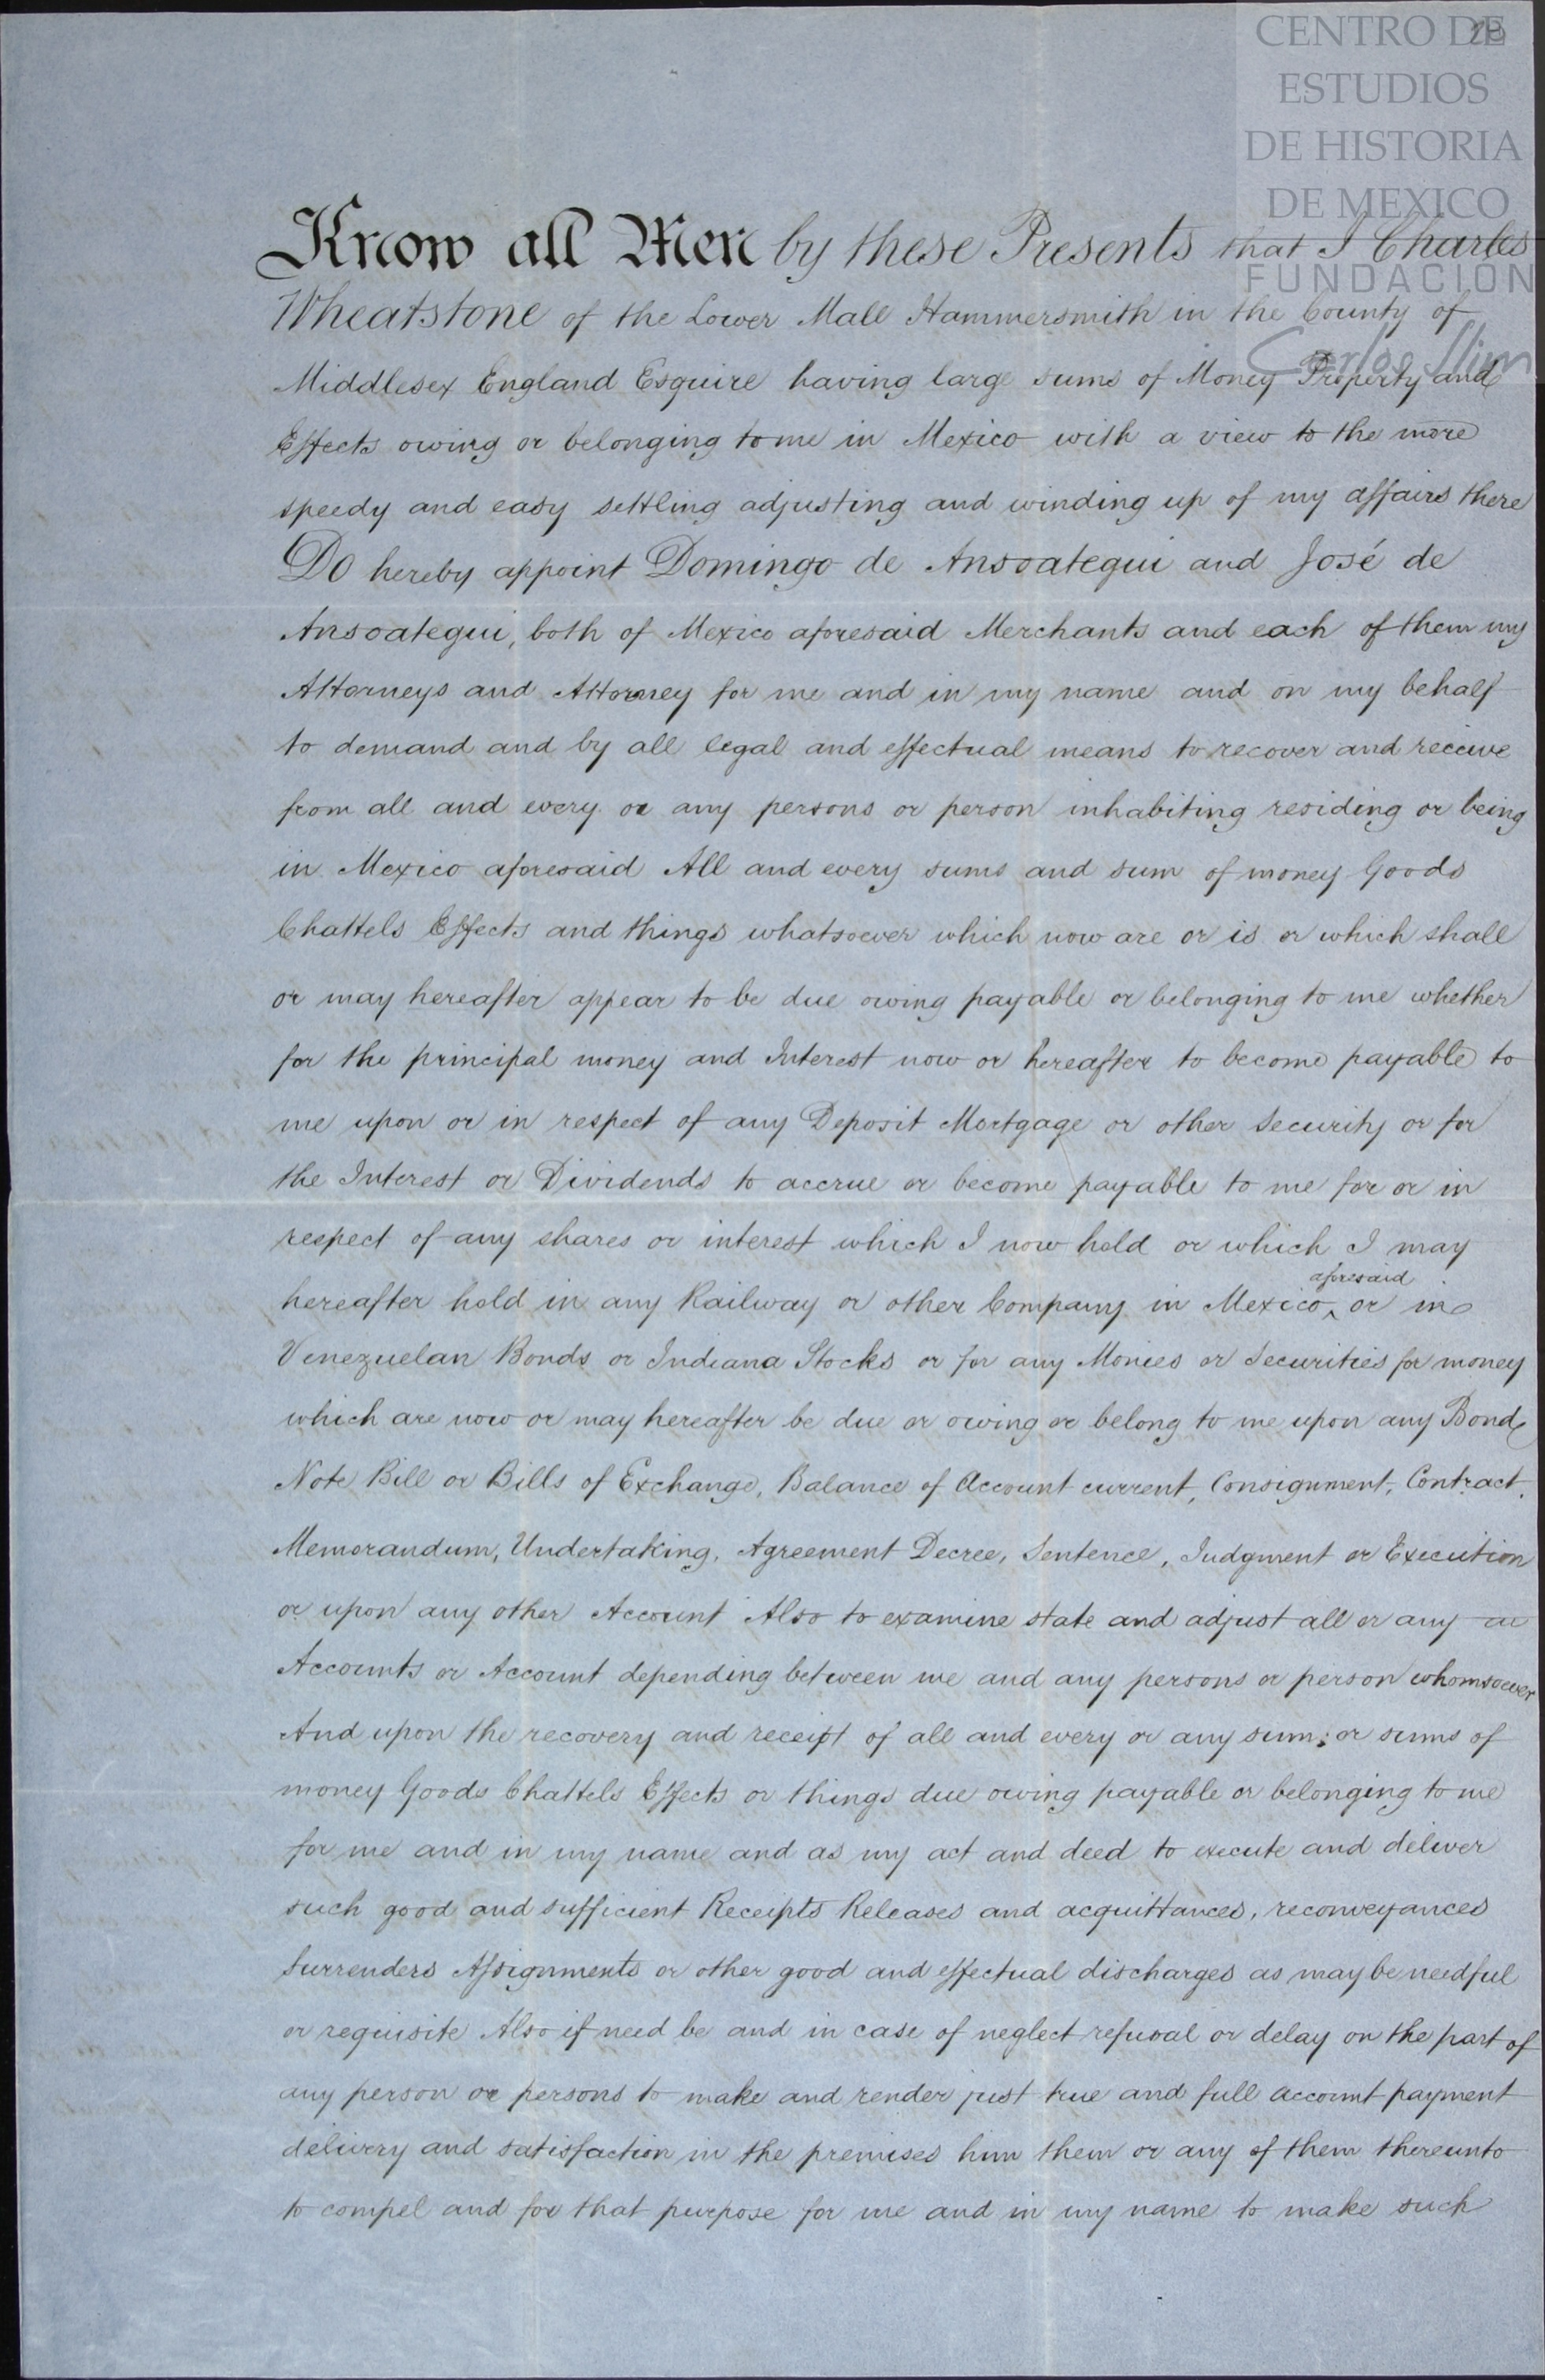 CENTRO DE
ESTUDIOS
DE HISTORIA
DE MEXICO
FUNDACIÓN
Carlos Slim
Know all Men by these Presents that I Charles
Wheatstone of the Lower Mall Hammersmith in the County of
Middlesex England Esquire having large sums of Money Property and
Effects owing or belonging to me in Mexico with a view to the more
speedy and easy settling adjusting and winding up of my affairs there
Do hereby appoint Domingo de Ansoategui and José de
Ansoategui, both of Mexico aforesaid Merchants and each of them my
Attorneys and Attorney for me and in my name and on my behalf
to demand and by all legal and effectual means to recover and receive
from all and every or any persons or person inhabiting residing or being
in Mexico aforesaid All and every sums and sum of money Goods
Chattels Effects and things whatsoever which now are or is or which shall
or may hereafter appear to be due owing payable or belonging to me whether
for the principal money and Interest now or hereafter to become payable to
me upon or in respect of any Deposit Mortgage or other Security or for
the Interest or Dividends to accrue or become payable to me for or in
respect of any shares or interest which I now hold or which I may
aforesaid
hereafter hold in any Railway or other Company in Mexico ‸ or in
Venezuelan Bonds or Indiana Stocks or for any Monies or Securities for money
which are now or may hereafter be due or owing or belong to me upon any Bond
Note Bill or Bills of Exchange, Balance of Account current, Consignment, Contract,
Memorandum, Undertaking, Agreement Decree, Sentence, Judgment or Execution
or upon any other Account Also to examine state and adjust all or any
Accounts or Account depending between me and any persons or person whomsoever
And upon the recovery and receipt of all and every or any sum; or sums of
money Goods Chattels Effects or things due owing payable or belonging to me
for me and in my name and as my act and deed to execute and deliver
such good and sufficient Receipts Releases and acquittances, reconveyances
Surrenders Assignments or other good and effectual discharges as may be needful
or requisite Also if need be and in case of neglect refusal or delay on the part of
any person or persons to make and render just true and full account payment
delivery and satisfaction in the premises him them or any of them thereunto
to compel and for that purpose for me and in my name to make such